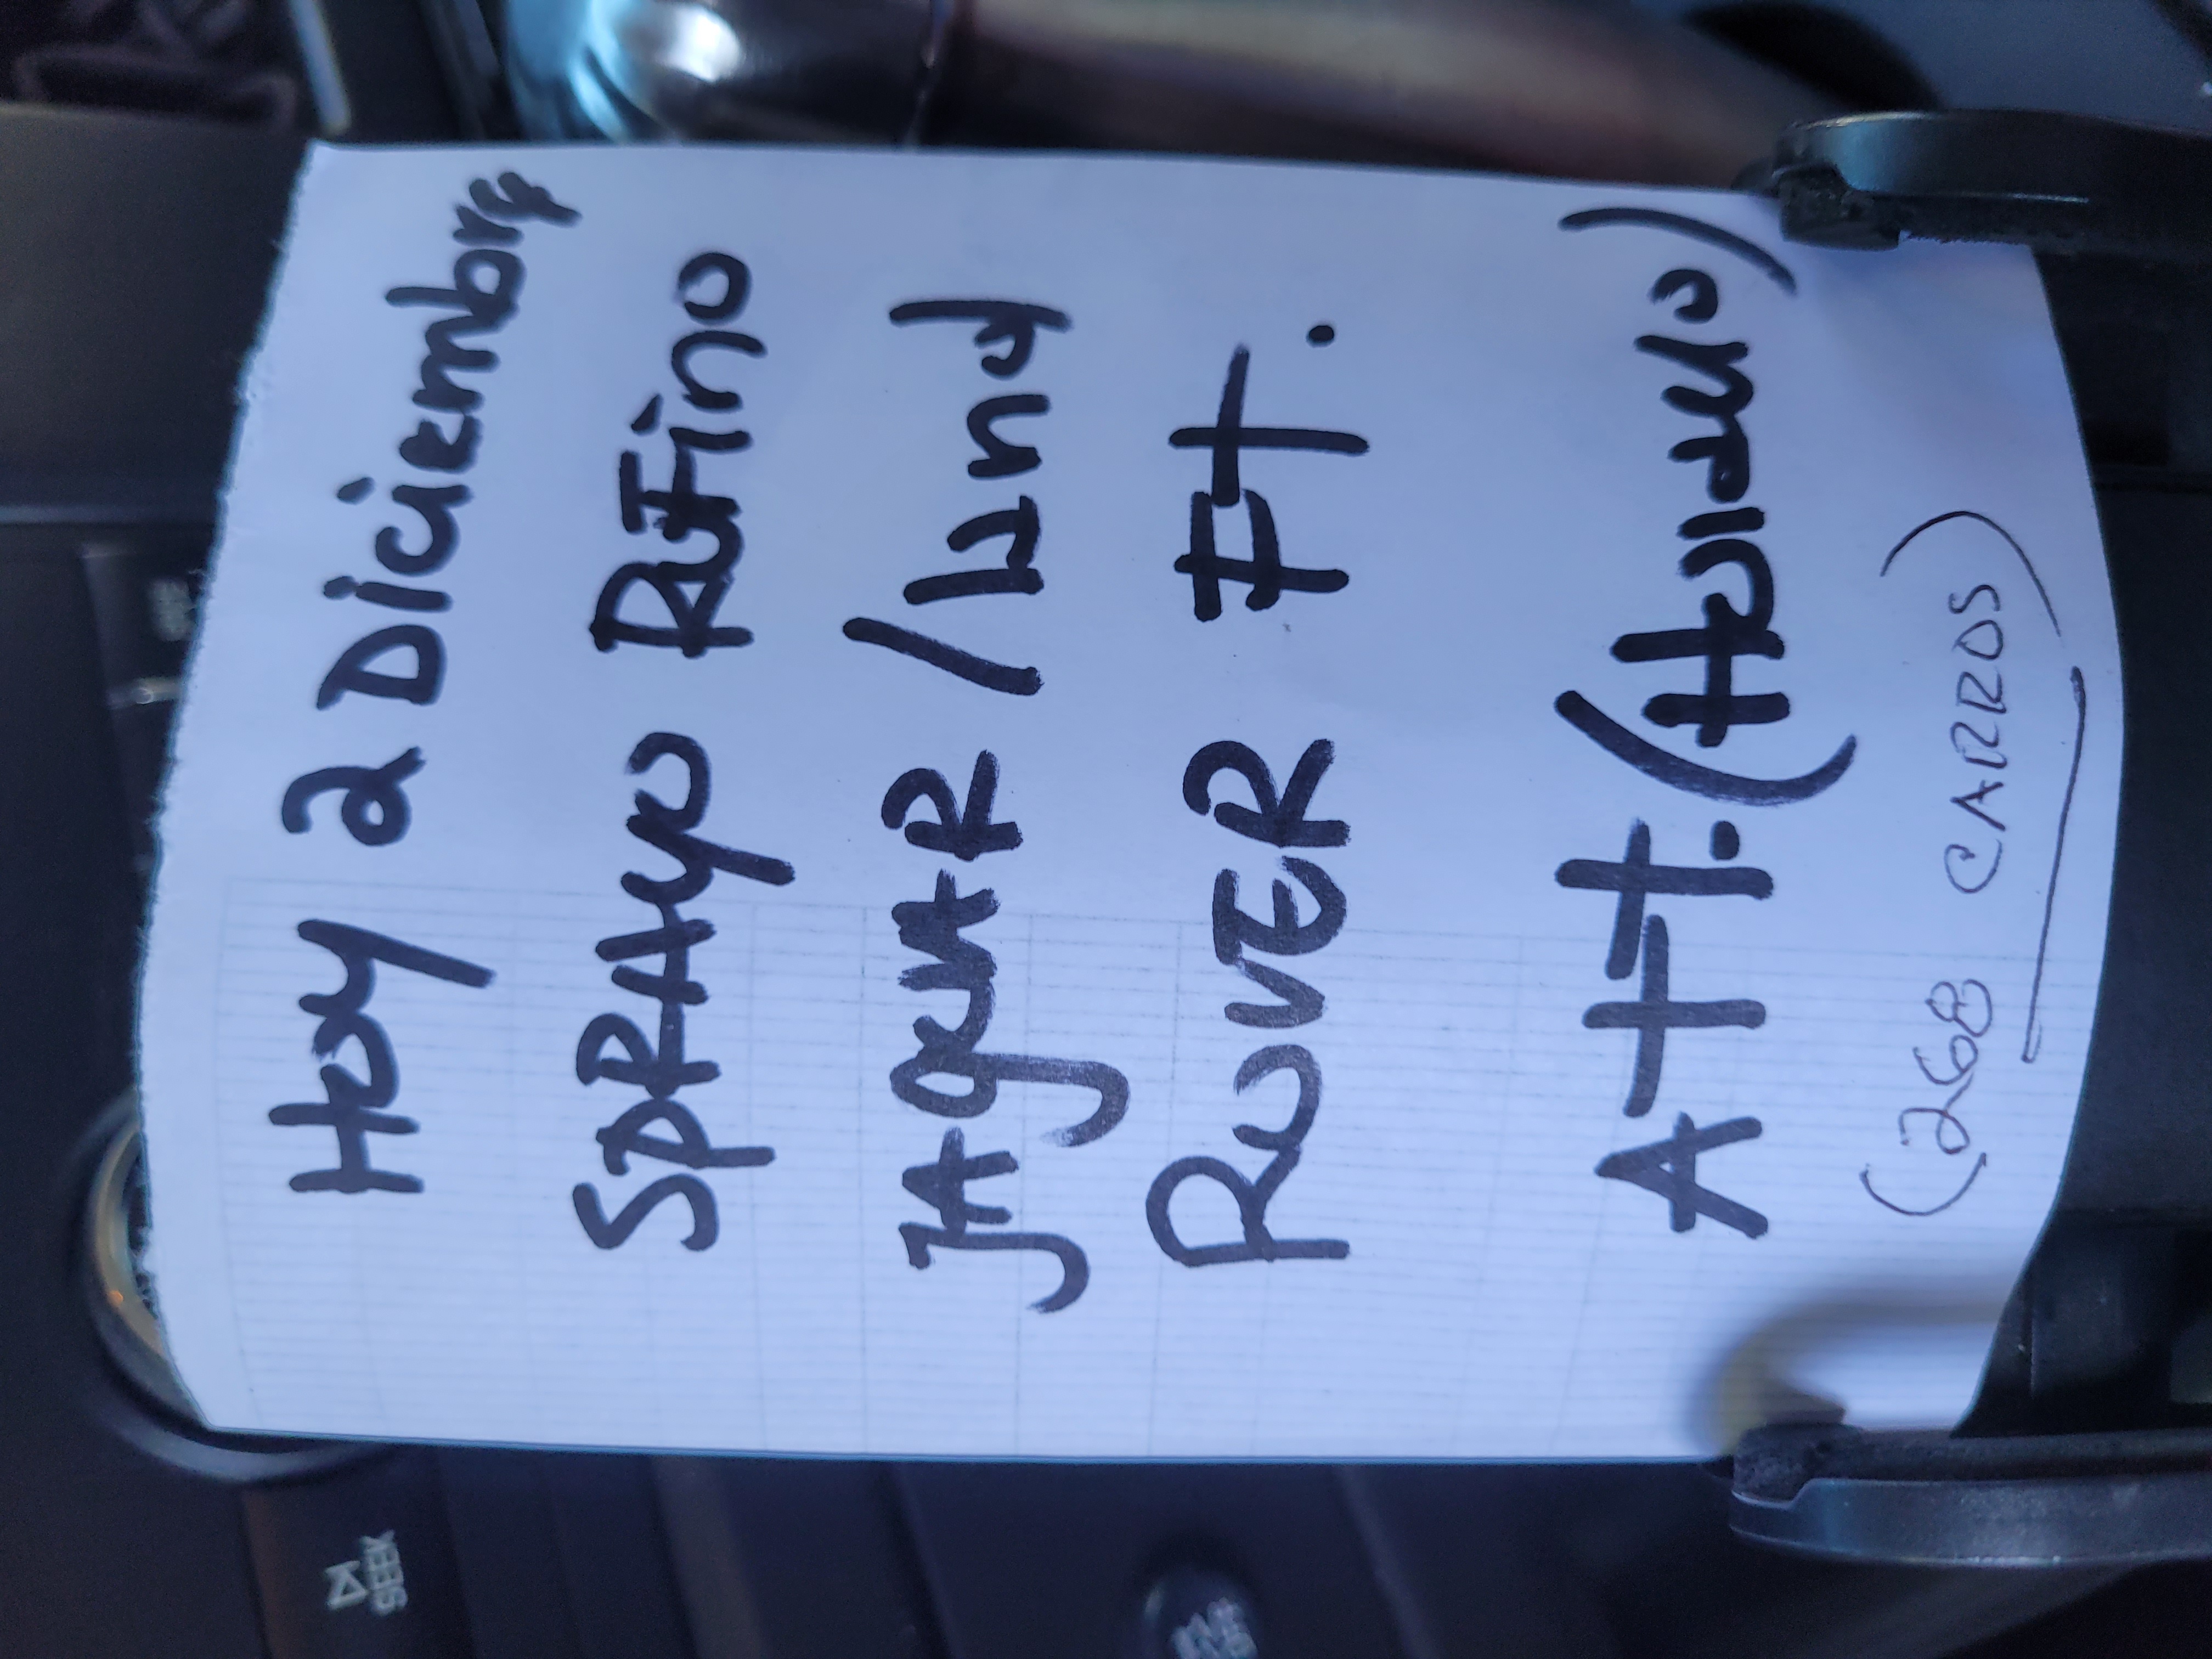 Hoy 2 Diciembre
SPRAyo RuFino
JAguAR / Land
RoVER Ft.
ATT. (Horacio)
(268 CARROS)
SEEK